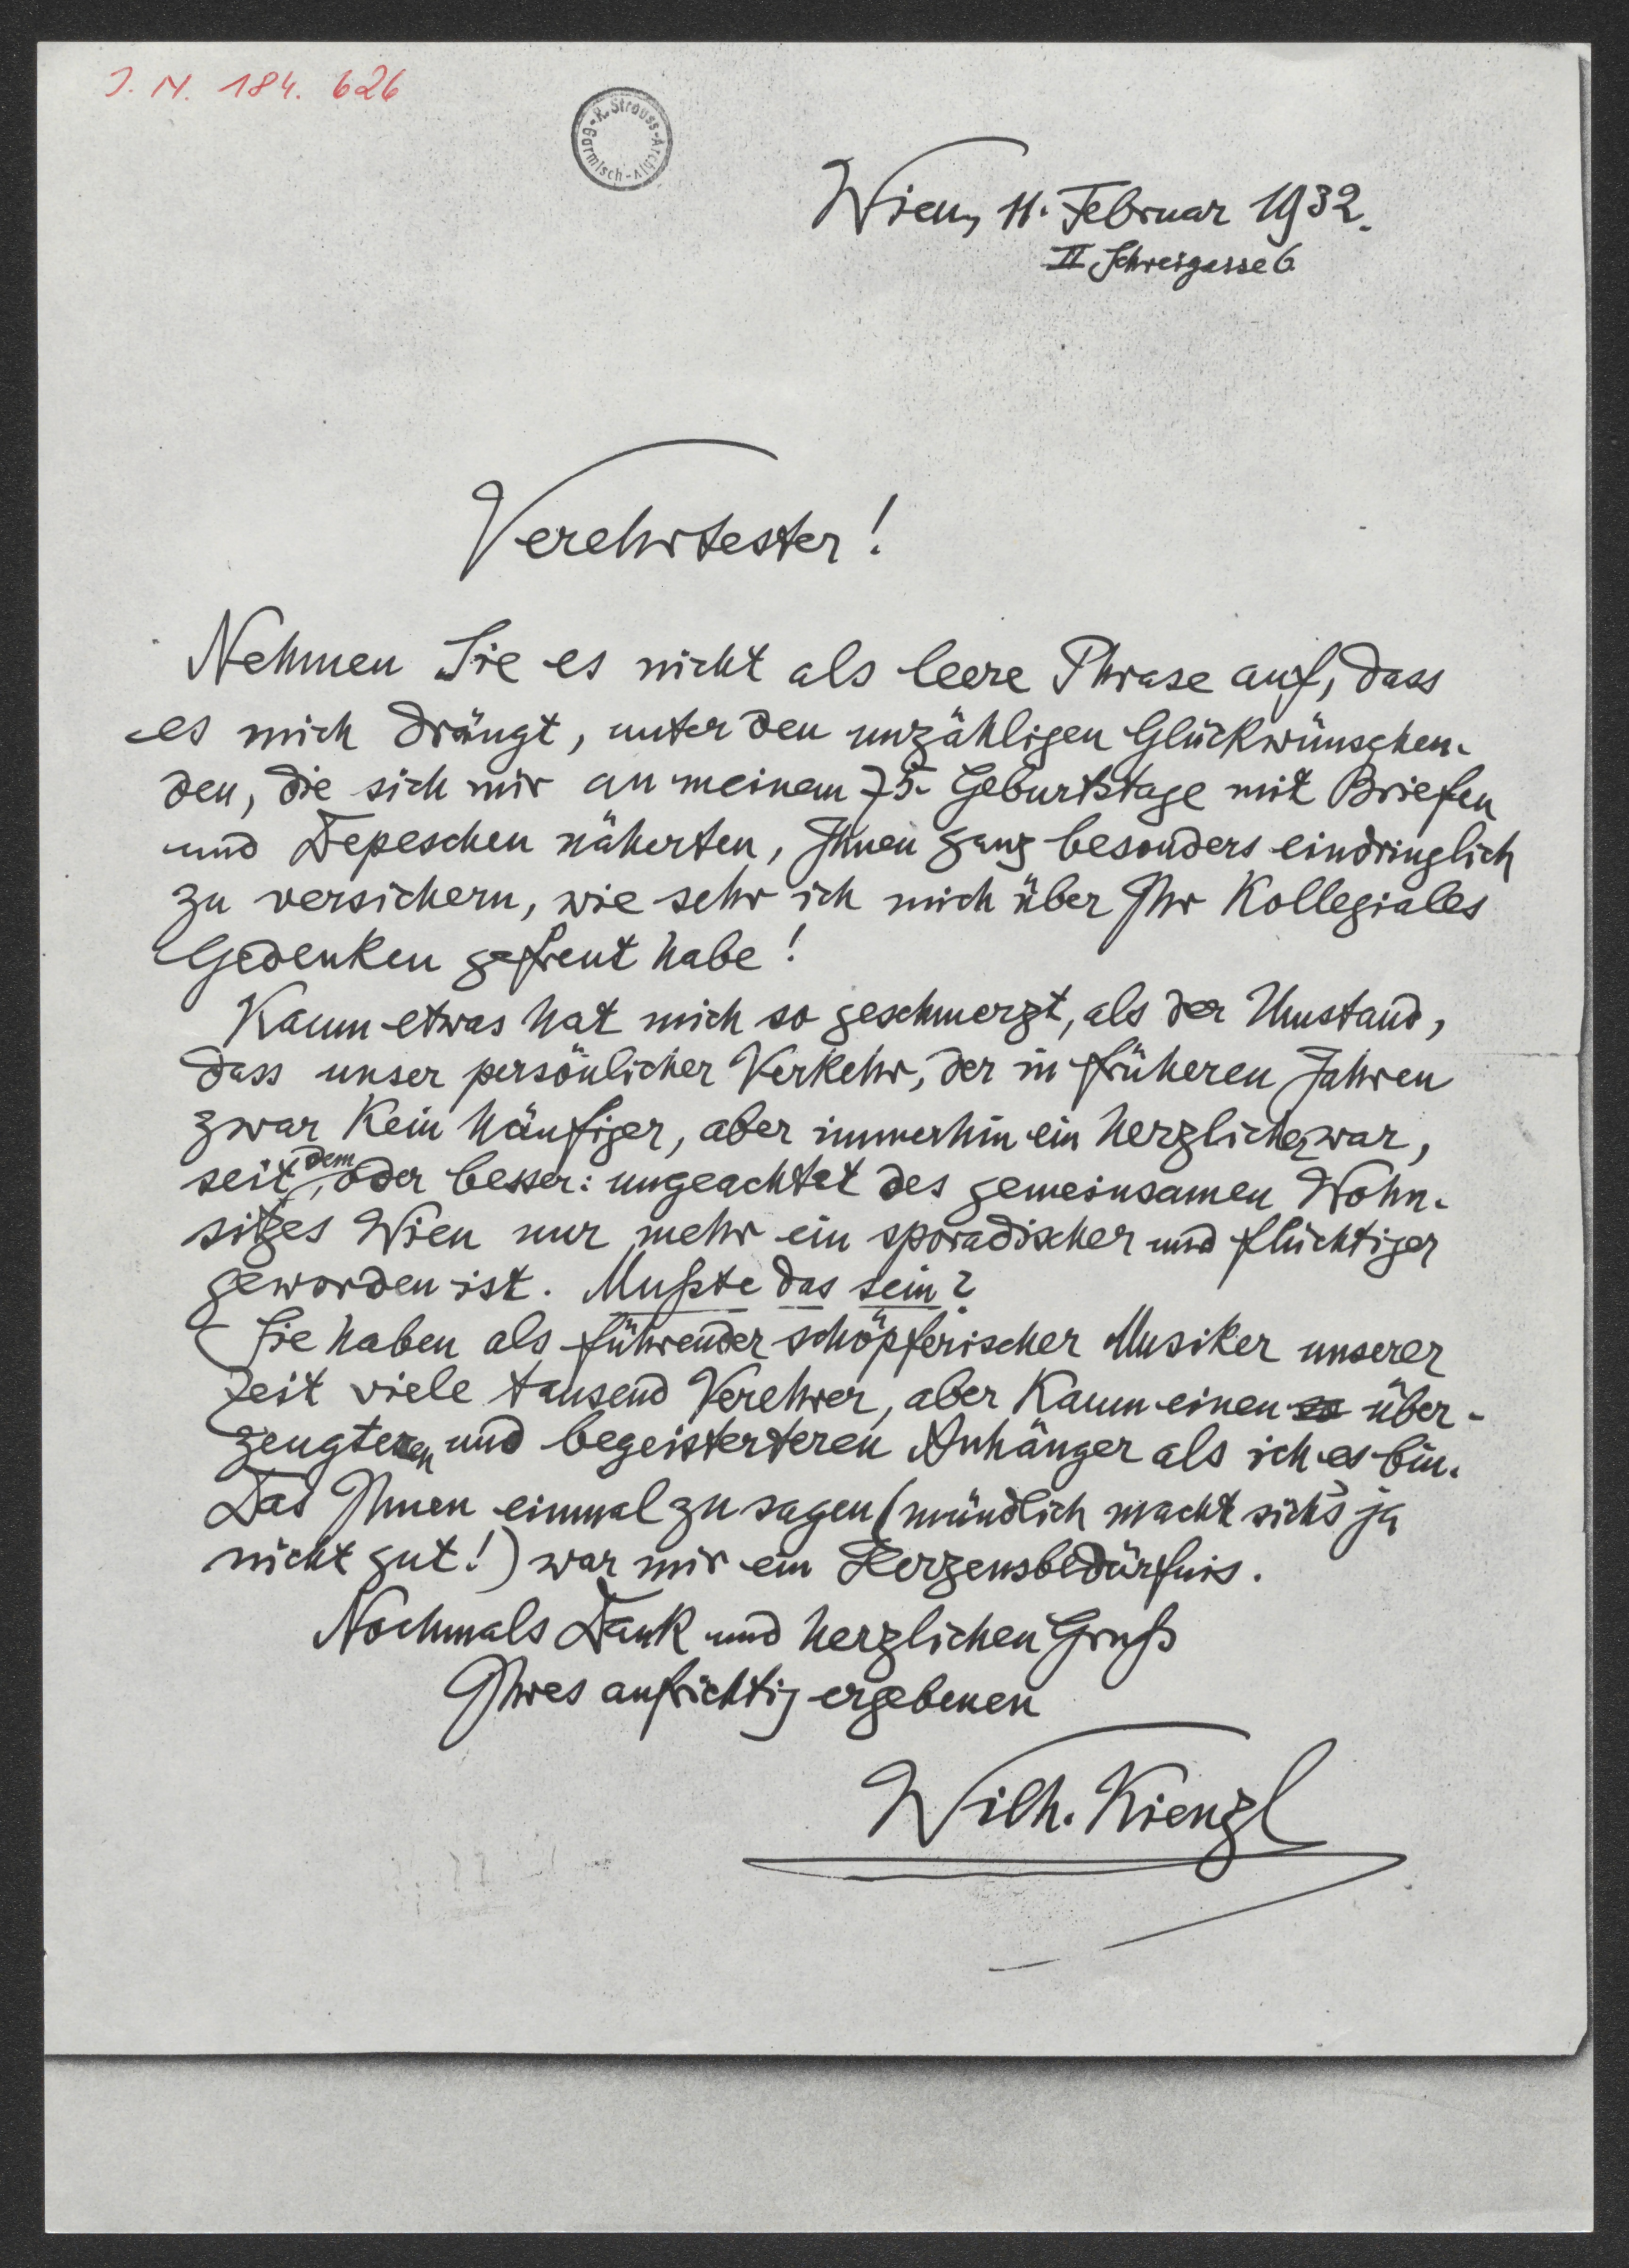 J. N. 184. 626
R. Strauss-Archiv-Garmisch-
Wien, 11. Februar 1932.
II Schreigasse 6
Verehrtester!
Nehmen Sie es nicht als leere Phrase auf, dass
es mich drängt, unter den unzähligen Glückwünschen-
den, die sich mir an meinem 75. Geburtstage mit Briefen
und Depeschen näherten, Ihnen ganz besonders eindringlich
zu versichern, wie sehr ich mich über Ihr Kollegiales
Gedenken gefreut habe!
Kaum etwas hat mich so geschmerzt, als der Umstand,
dass unser persönlicher Verkehr, der in früheren Jahren
zwar kein häufiger, aber immerhin ein herzlicher war,
seitdem, oder besser: ungeachtet des gemeinsamen Wohn-
sitzes Wien nur mehr ein sporadischer und flüchtiger
geworden ist. Mußte das sein?
Sie haben als führender schöpferischer Musiker unserer
Zeit viele tausend Verehrer, aber kaum einen so über-
zeugteren und begeisterteren Anhänger als ich es bin.
Das Ihnen einmal zu sagen (mündlich macht sich's ja
nicht gut!) war mir ein Herzensbedürfnis.
Nochmals Dank und herzlichen Gruß
Ihres aufrichtig ergebenen
Wilh. Kienzl